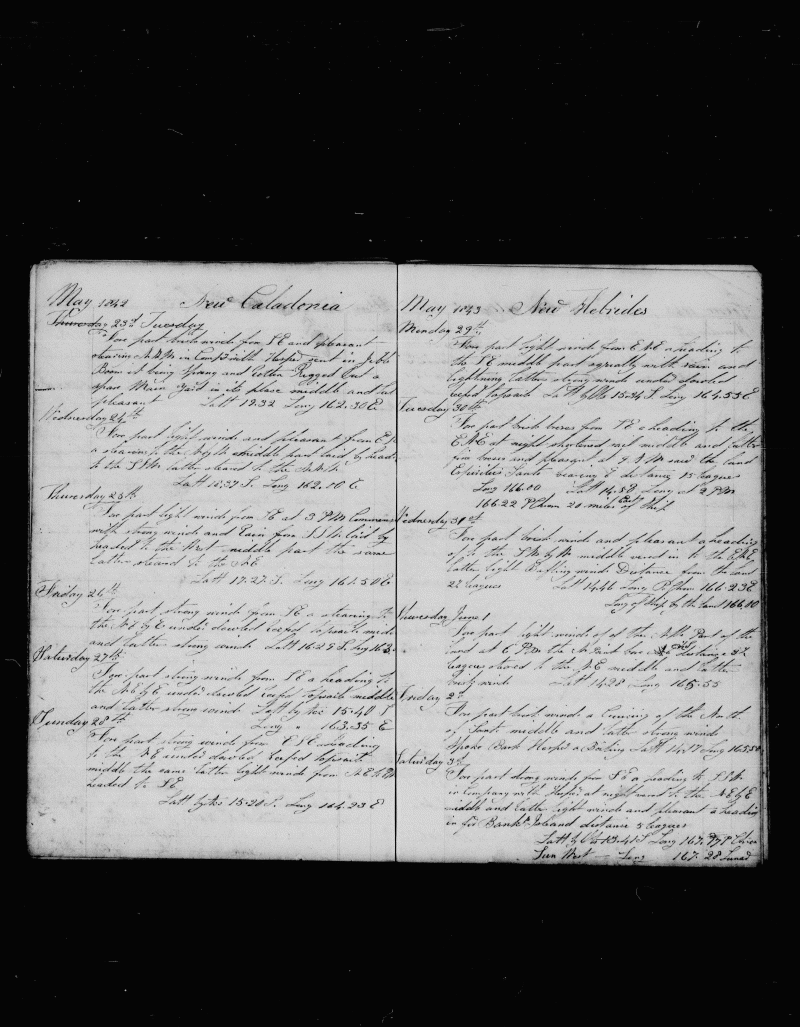 May 1842 New Caladonia
Thursday 23d Tuesday
Fore part brisk winds from SE and pleasant
in Comp with Hesper sent in Jibb
Boom it being Sprang and latter Rigged out a
spare Main Yard in its place middle and lat
pleasant Latt 17.32 Long 162.30 E
Wednesday 24th
Fore part light winds and pleasant from
a steering the middle part laid by head
to the latter steared to the
Latt Long 162.00 E
Thursday 25th
Fore part light winds from SE at 3 PM Commenced
with strong winds and Rain from laid by
headed to the West middle part the same
latter steared to the
Latt 17.27 S. Long 161.50 E
Friday 26th
Fore part strong winds from SE a stearing to
the N E by E under dowbel reefed topsails midd
and latter strong winds Latt Long
Saturday 27th
Fore part strong winds from SE a heading to
the NE by E under dowbel reefed topsails middle
and latter strong winds Latt by obs 15.40
Long " 163.35 E
Sunday 28th
Fore part strong winds from ESE a heading
to the NE under dowbel reefed topsails
middle the same latter light winds from
headed to SE
Latt by obs 15.20 S. Long 164.23 E
May 1843 New Hebrides
Monday 29th
Fore part light winds from ENE a heading to
the SE middle part squally with rain and
lightning latter strong winds under dowbel
reefed topsails Latt by obs 15.24 S Long 164.53 E
Tuesday 30th
Fore part brisk breses from SE a heading to the
ENE at night shortened sail middle and latter
fine breses and pleasant at 9 AM saw the land
Espiritu Santo bearing E distance 15 leagues
Long 166.00 Latt 14.58 Long at 2 PM
166.22 P Chron 20 miles East of ship
Wednesday 31st
Fore part brisk winds and pleasant a heading
of to the middle veered in to the ENE
latter light Baffling winds Distance from the land
22 leagues Latt 14.46 Long P Chron 166.23 E
Long of Ship by the land 166.00
Thursday June 1
Fore part light winds of at the Part of the
land at 6 PM the Point bore distance
leagues steared to the NE middle and latter
light winds Latt 14.28 Long 165.55
Friday 2d
Fore part brisk winds a Cruising of the North
of Santo middle and latter strong winds
spoke Bark Hesper a Boiling Latt 14.17 Long 165.50
Saturday 3d
Fore part strong winds from SE a heading to SSW
in Company with Hesper at night wared to the NE by E
middle and latter light winds and pleasant a heading
in for Banks Island distance 5 leagues
Latt by obs 13.41 S Long 167. P Chron
Sun West Long 167.28 Lunar